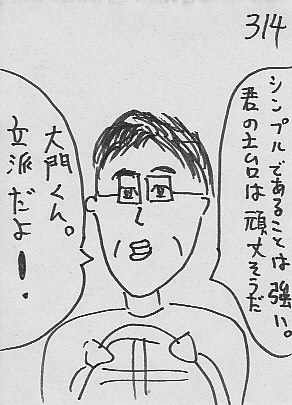 314
シンプルであることは強い。
君の土ムロは頑丈そうだ
大門くん。
立派だよー！